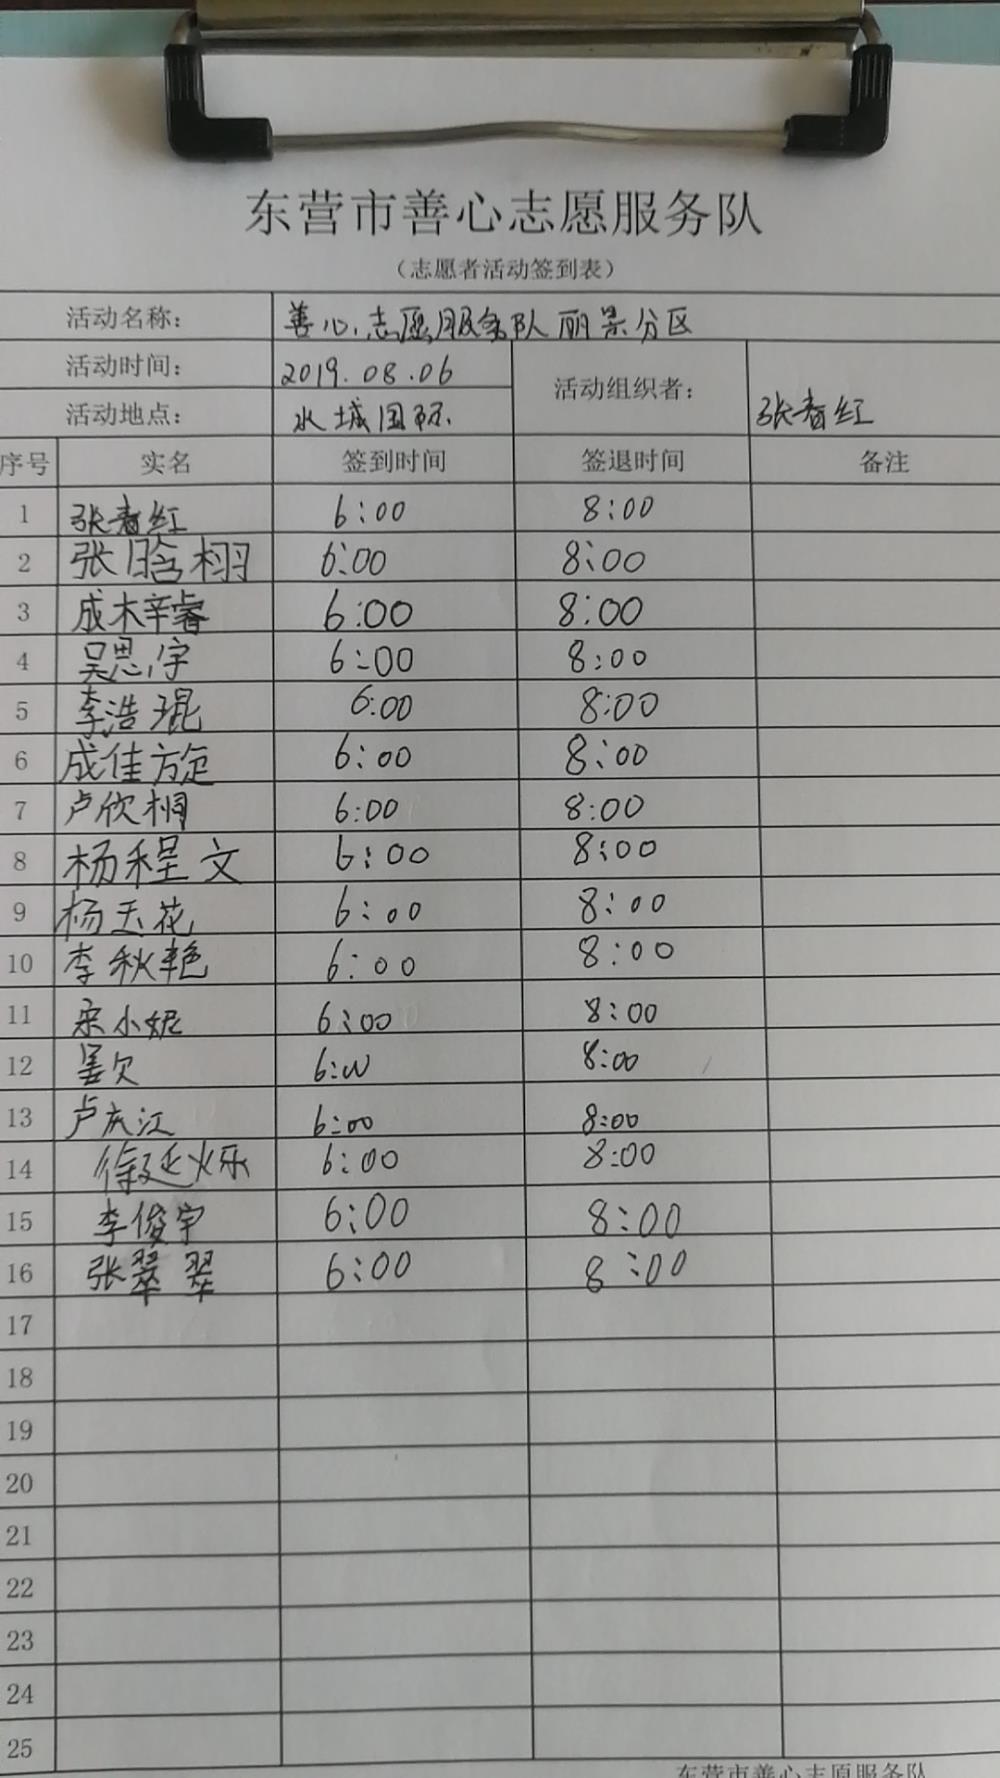 东营市善心志愿服务队
（志愿者活动签到表）
活动名称： 善心志愿服务队丽景分区
活动时间： 2019.08.06 活动组织者： 张春红
活动地点： 水城国际
序号 实名 签到时间 签退时间 备注
1 张春红 6:00 8:00
2 张晗栩 6:00 8:00
3 成梓睿 6:00 8:00
4 吴思宇 6:00 8:00
5 李浩琨 6:00 8:00
6 成佳旋 6:00 8:00
7 卢欣桐 6:00 8:00
8 杨程文 6:00 8:00
9 杨玉花 6:00 8:00
10 李秋艳 6:00 8:00
11 宋小妮 6:00 8:00
12 6:00 8:00
13 卢庆江 6:00 8:00
14 徐延烁 6:00 8:00
15 李俊宇 6:00 8:00
16 张翠翠 6:00 8:00
17
18
19
20
21
22
23
24
25
东营市善心志愿服务队